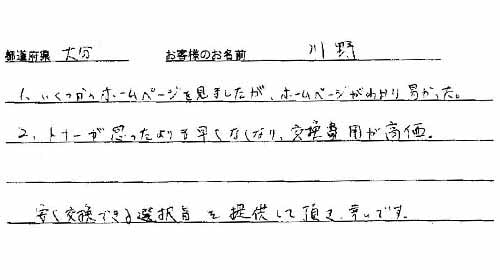 都道府県 大分 お客様のお名前 川野
1、いくつかのホームページを見ましたが、ホームページがわかり易かった。
2、トナーが思ったよりも早くなくなり、交換費用が高価。
安く交換できる選択肢を提供して頂き、幸いです。